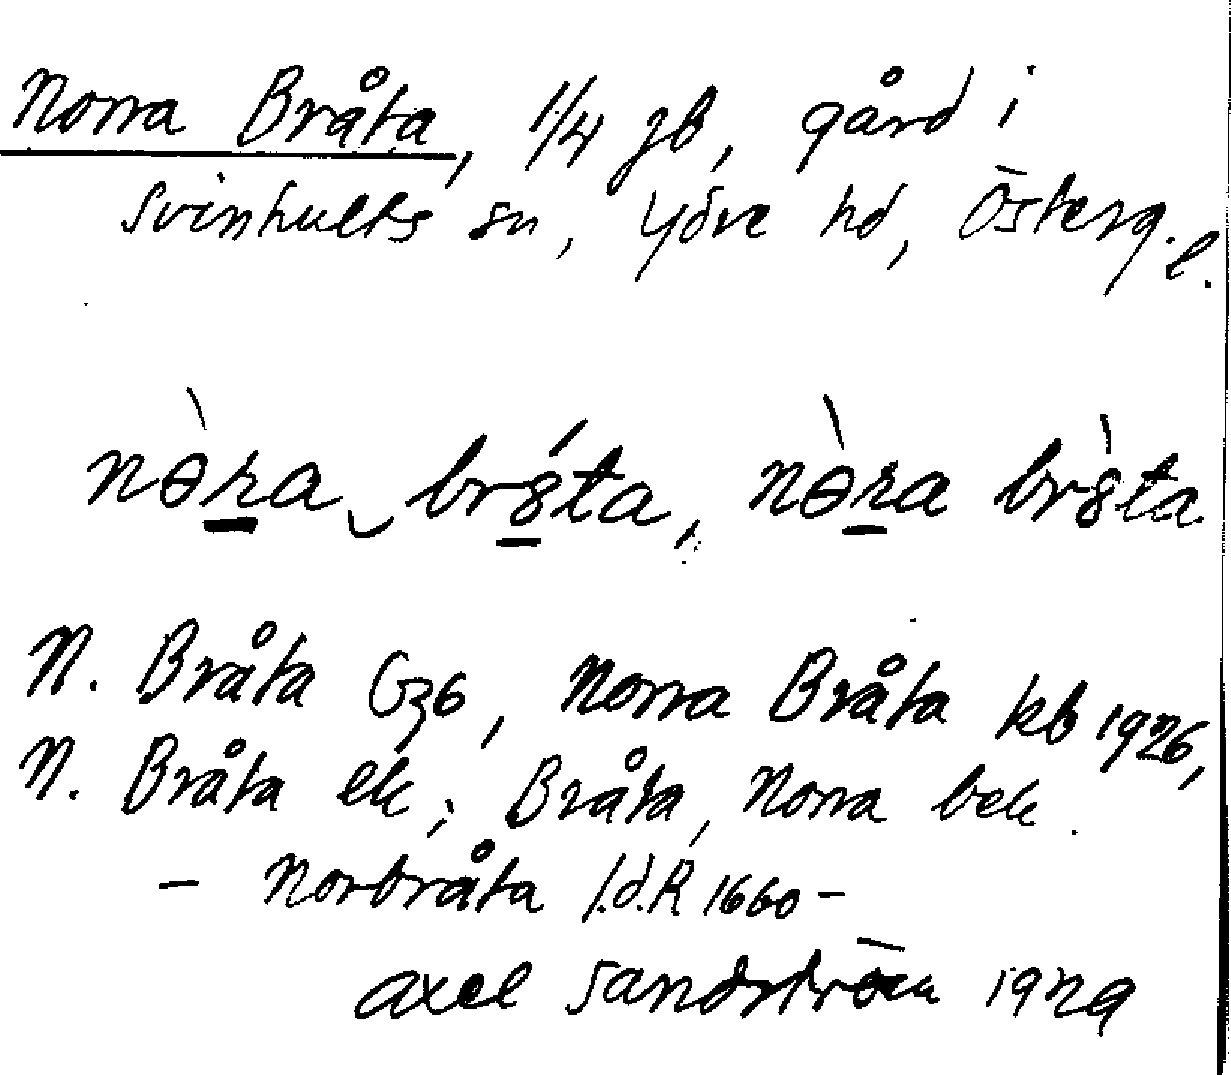 Norra Bråta, 1/4 jb, gård i
Svinhults sn, Ydre hd, Österg. l.
nòra brsta, nòra brsta
N. Bråta Gzb, Norra Bråta kb 1926,
N. Bråta ek; Bråta, Norra bek.
- Norbråta J.d.R 1660 -
Axel Sandström 1929